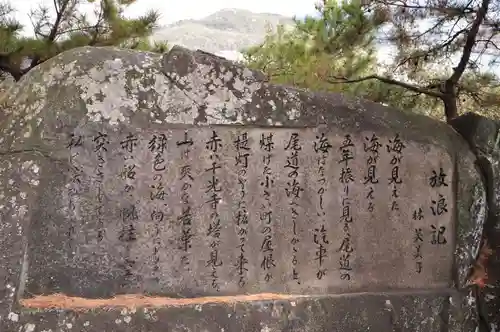 放浪記
林芙美子
海が見えた
海が見える
五年振りに見る尾道の
海はなつかしい 汽車が
尾道の海へさしかかると
煤けた小さい町の屋根が
提灯のように拡がって来る
赤い千光寺の塔が見える
山は爽かな若葉だ
緑色の海向うにドックの
赤い船が帆柱を空に
突きさしている
私は涙があふれていた